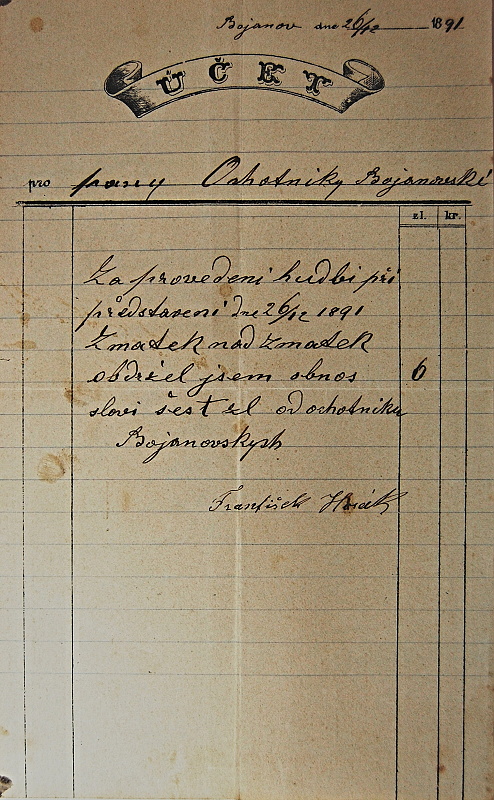 Bojanov dne 26/12 1891
ÚČET
pro pany Ochotniky Bojanovské
zl. kr.
Za provedeni hudbi při
představeni dne 26/12 1891
Zmatek nad zmatek
obdržel jsem obnos 6
slovi šest zl od ochotniku
Bojanovskych
František